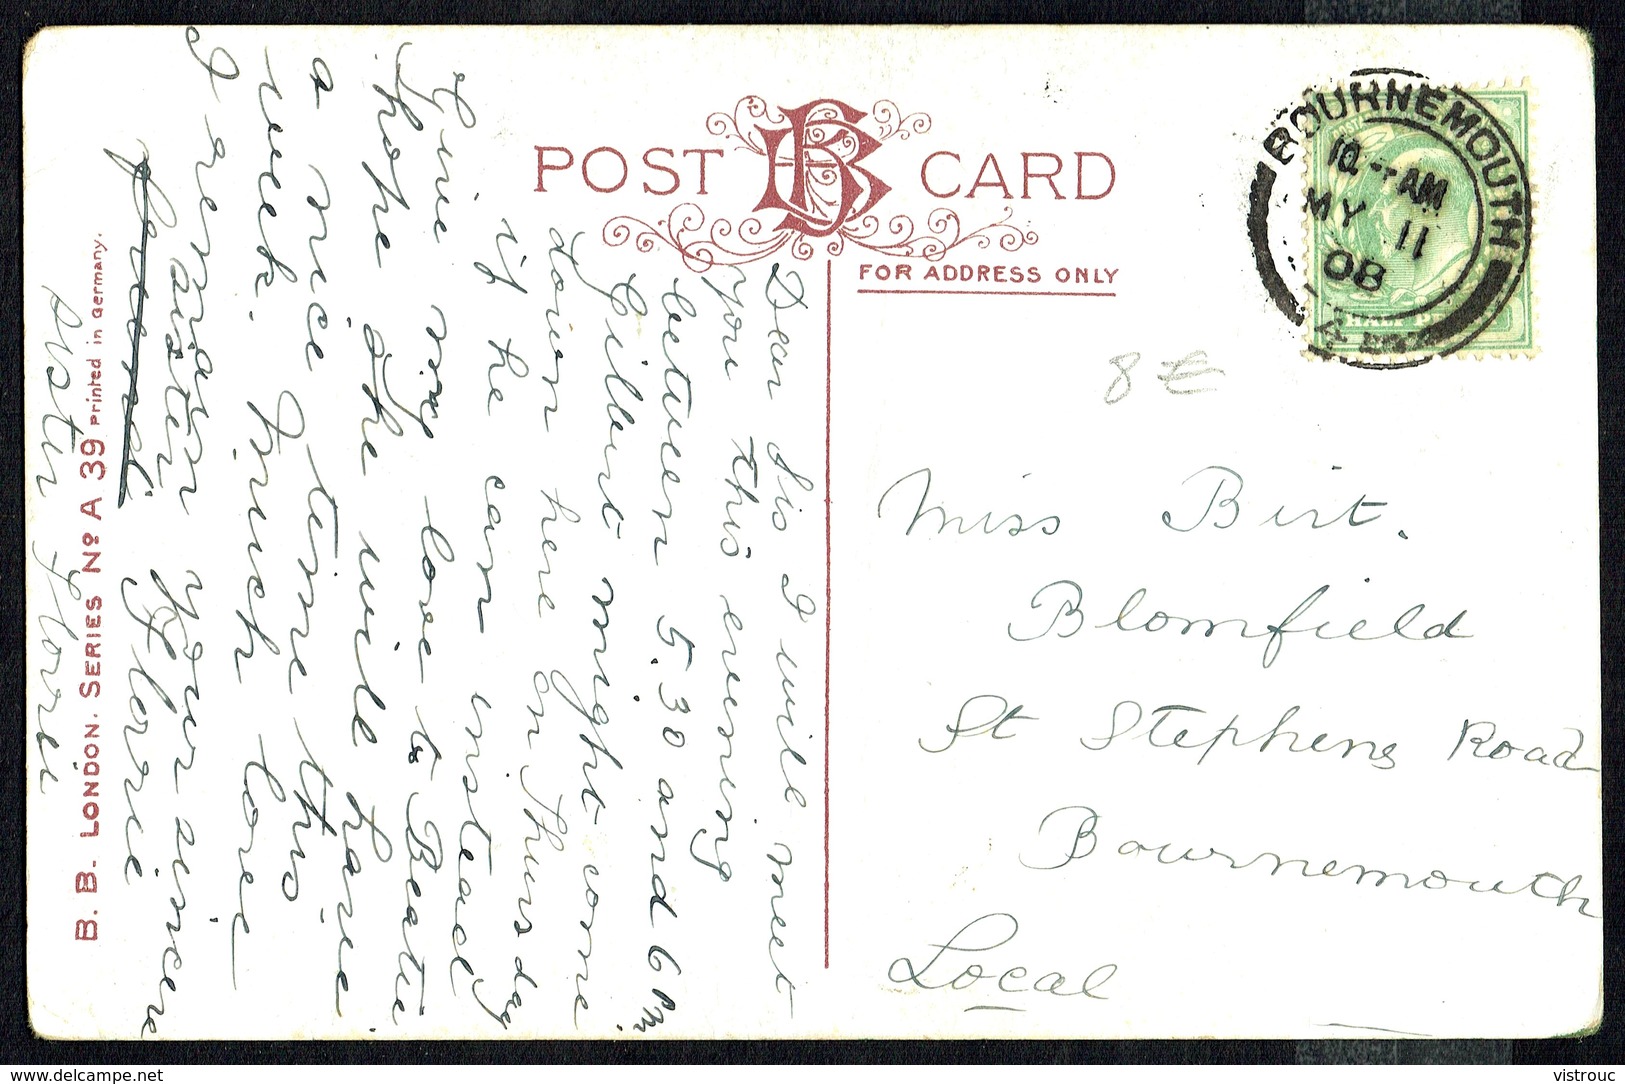 POST CARD
FOR ADDRESS ONLY
BOURNEMOUTH
10 - AM
MY 11
08
8 €
Miss Birt.
Blomfield
St Stephens Road
Bournemouth
Local
Dear Sis I will meet
you this evening
between 5.30 and 6 pm
Gilbert might come
down here on Thursday
if he can instead
Give my love to Beatie
I hope she will have
a nice time this
week. Much love
I remain your sincere
sister Florrie
sister Florrie
B. B. LONDON. SERIES No A 39 Printed in Germany.
delcampe.net
vistrouc